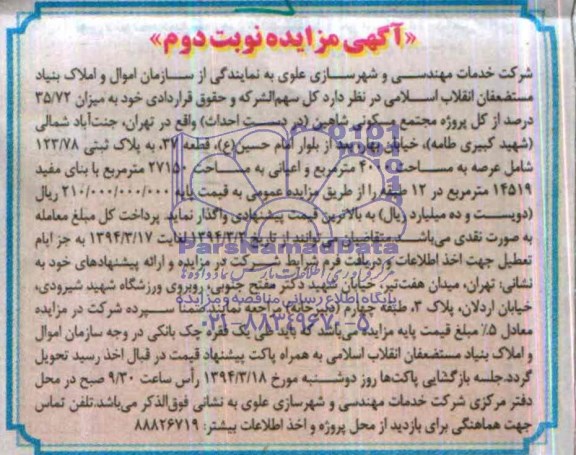 «آگهی مزایده نوبت دوم»
شرکت خدمات مهندسی و شهرسازی علوی به نمایندگی از سازمان اموال و املاک بنیاد
مستضعفان انقلاب اسلامی در نظر دارد کل سهم‌الشرکه و حقوق قراردادی خود به میزان ۳۵/۷۲
درصد از کل پروژه مجتمع مسکونی شاهین (در دست احداث) واقع در تهران، جنت‌آباد شمالی
(شهید کبیری طامه)، خیابان بهار، بعد از بلوار امام حسین(ع)، قطعه ۳۷، به پلاک ثبتی ۱۲۳/۷۸
شامل عرصه به مساحت ۴۰۱۰ مترمربع و اعیانی به مساحت ۲۷۱۵۰ مترمربع با بنای مفید
۱۴۵۱۹ مترمربع در ۱۲ طبقه را از طریق مزایده عمومی به قیمت پایه ۲۱۰/۰۰۰/۰۰۰/۰۰۰ ریال
(دویست و ده میلیارد ریال) به بالاترین قیمت پیشنهادی واگذار نماید. پرداخت کل مبلغ معامله
به صورت نقدی می‌باشد. متقاضیان می‌توانند از تاریخ ۱۳۹۴/۳/۲ لغایت ۱۳۹۴/۳/۱۷ به جز ایام
تعطیل جهت اخذ اطلاعات و دریافت فرم شرایط شرکت در مزایده و ارائه پیشنهادهای خود به
نشانی: تهران، میدان هفت‌تیر، خیابان شهید دکتر مفتح جنوبی، روبروی ورزشگاه شهید شیرودی،
خیابان اردلان، پلاک ۳، طبقه چهارم (دبیرخانه) مراجعه نمایند. ضمناً سپرده شرکت در مزایده
معادل ۵٪ مبلغ قیمت پایه مزایده می‌باشد که باید طی یک فقره چک بانکی در وجه سازمان اموال
و املاک بنیاد مستضعفان انقلاب اسلامی به همراه پاکت پیشنهاد قیمت در قبال اخذ رسید تحویل
گردد. جلسه بازگشایی پاکت‌ها روز دوشنبه مورخ ۱۳۹۴/۳/۱۸ رأس ساعت ۹/۳۰ صبح در محل
دفتر مرکزی شرکت خدمات مهندسی و شهرسازی علوی به نشانی فوق‌الذکر می‌باشد. تلفن تماس
جهت هماهنگی برای بازدید از محل پروژه و اخذ اطلاعات بیشتر: ۸۸۸۲۶۷۱۹
ParsNamadData
پایگاه اطلاع رسانی مناقصه و مزایده
۰۲۱-۸۸۳۴۹۶۷۰-۵